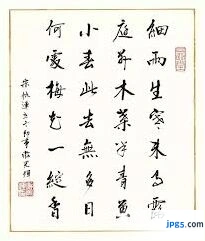 細雨生寒未有霜
庭前木葉半青黃
小春此去無多日
何處梅花一綻香
JPG5.com